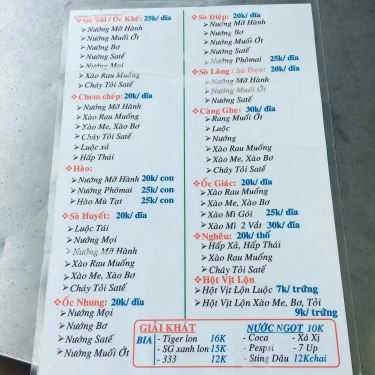 Ốc Khế: 25k/ dĩa
Nướng Mỡ Hành
Nướng Muối Ớt
Nướng Bơ
Nướng Satế
Nướng Mọi
Xào Rau Muống
Cháy Tỏi Satế
Chem chép: 20k/ dĩa
Nướng Mỡ Hành
Xào Rau Muống
Xào Me, Xào Bơ
Cháy Tỏi Satế
Luộc sả
Hấp Thái
Hào:
Nướng Mỡ Hành 20k/ con
Nướng Phômai 25k/ con
Hào Mù Tạt 25k/ con
Sò Huyết: 20k/ dĩa
Luộc Tái
Nướng Mọi
Nướng Mỡ Hành
Xào Rau Muống
Xào Me, Xào Bơ
Cháy Tỏi Satế
Ốc Nhung: 20k/ dĩa
Nướng Mọi
Nướng Bơ
Nướng Satế
Nướng Muối Ớt
Sò Điệp: 20k/ dĩa
Nướng Mỡ Hành
Nướng Bơ
Nướng Muối Ớt
Nướng Satế
Nướng Phômai 25k/ dĩa
Sò Lông 20k/ dĩa
Nướng Mỡ Hành
Nướng Muối Ớt
Nướng Satế
Càng Ghẹ: 30k/ dĩa
Rang Muối Ớt
Luộc
Nướng
Xào Rau Muống
Xào Me, Xào Bơ
Cháy Tỏi Satế
Ốc Giác: 20k/ dĩa
Xào Rau Muống
Xào Me, Xào Bơ
Xào Mì Gói 25k/ dĩa
Xào Mì 2 Vắt 30k/ dĩa
Nghêu: 20k/ thố
Hấp Xả, Hấp Thái
Xào Rau Muống
Xào Me, Xào Bơ
Cháy Tỏi Satế
Hột Vịt Lộn
Hột Vịt Lộn Luộc 7k/ trứng
Hột Vịt Lộn Xào Me, Bơ, Tỏi
9k/ trứng
GIẢI KHÁT
BIA
- Tiger lon 16K
- SG xanh lon 15K
- 333 12K
NƯỚC NGỌT 10K
- Coca - Xá Xị
- Pespsi - 7 Up
- Sting Dâu 12Kchai